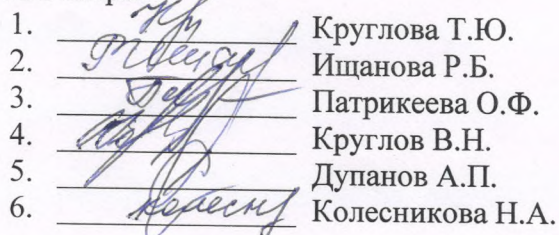 1. Круглова Т.Ю.
2. Ищанова Р.Б.
3. Патрикеева О.Ф.
4. Круглов В.Н.
5. Дупанов А.П.
6. Колесникова Н.А.